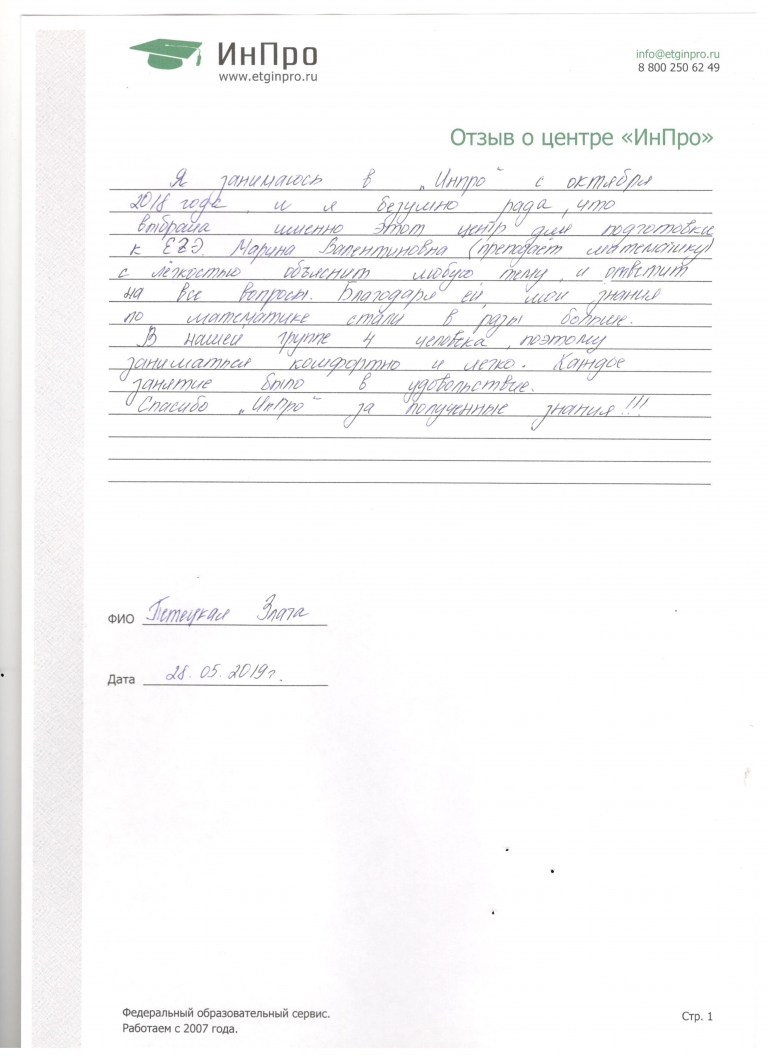 ИнПро
www.etginpro.ru
info@etginpro.ru
8 800 250 62 49
Отзыв о центре «ИнПро»
Я занимаюсь в „Инпро" с октября
2018 года, и я безумно рада, что
выбрала именно этот центр для подготовки
к ЕГЭ. Марина Валентиновна (преподаёт математику)
с лёгкостью объяснит любую тему, и ответит
на все вопросы. Благодаря ей, мои знания
по математике стали в разы больше.
В нашей группе 4 человека, поэтому
заниматься комфортно и легко. Каждое
занятие было в удовольствие.
Спасибо „ИнПро" за полученные знания!!!
ФИО Петецкая Злата
Дата 28.05.2019г.
Федеральный образовательный сервис.
Работаем с 2007 года.
Стр. 1